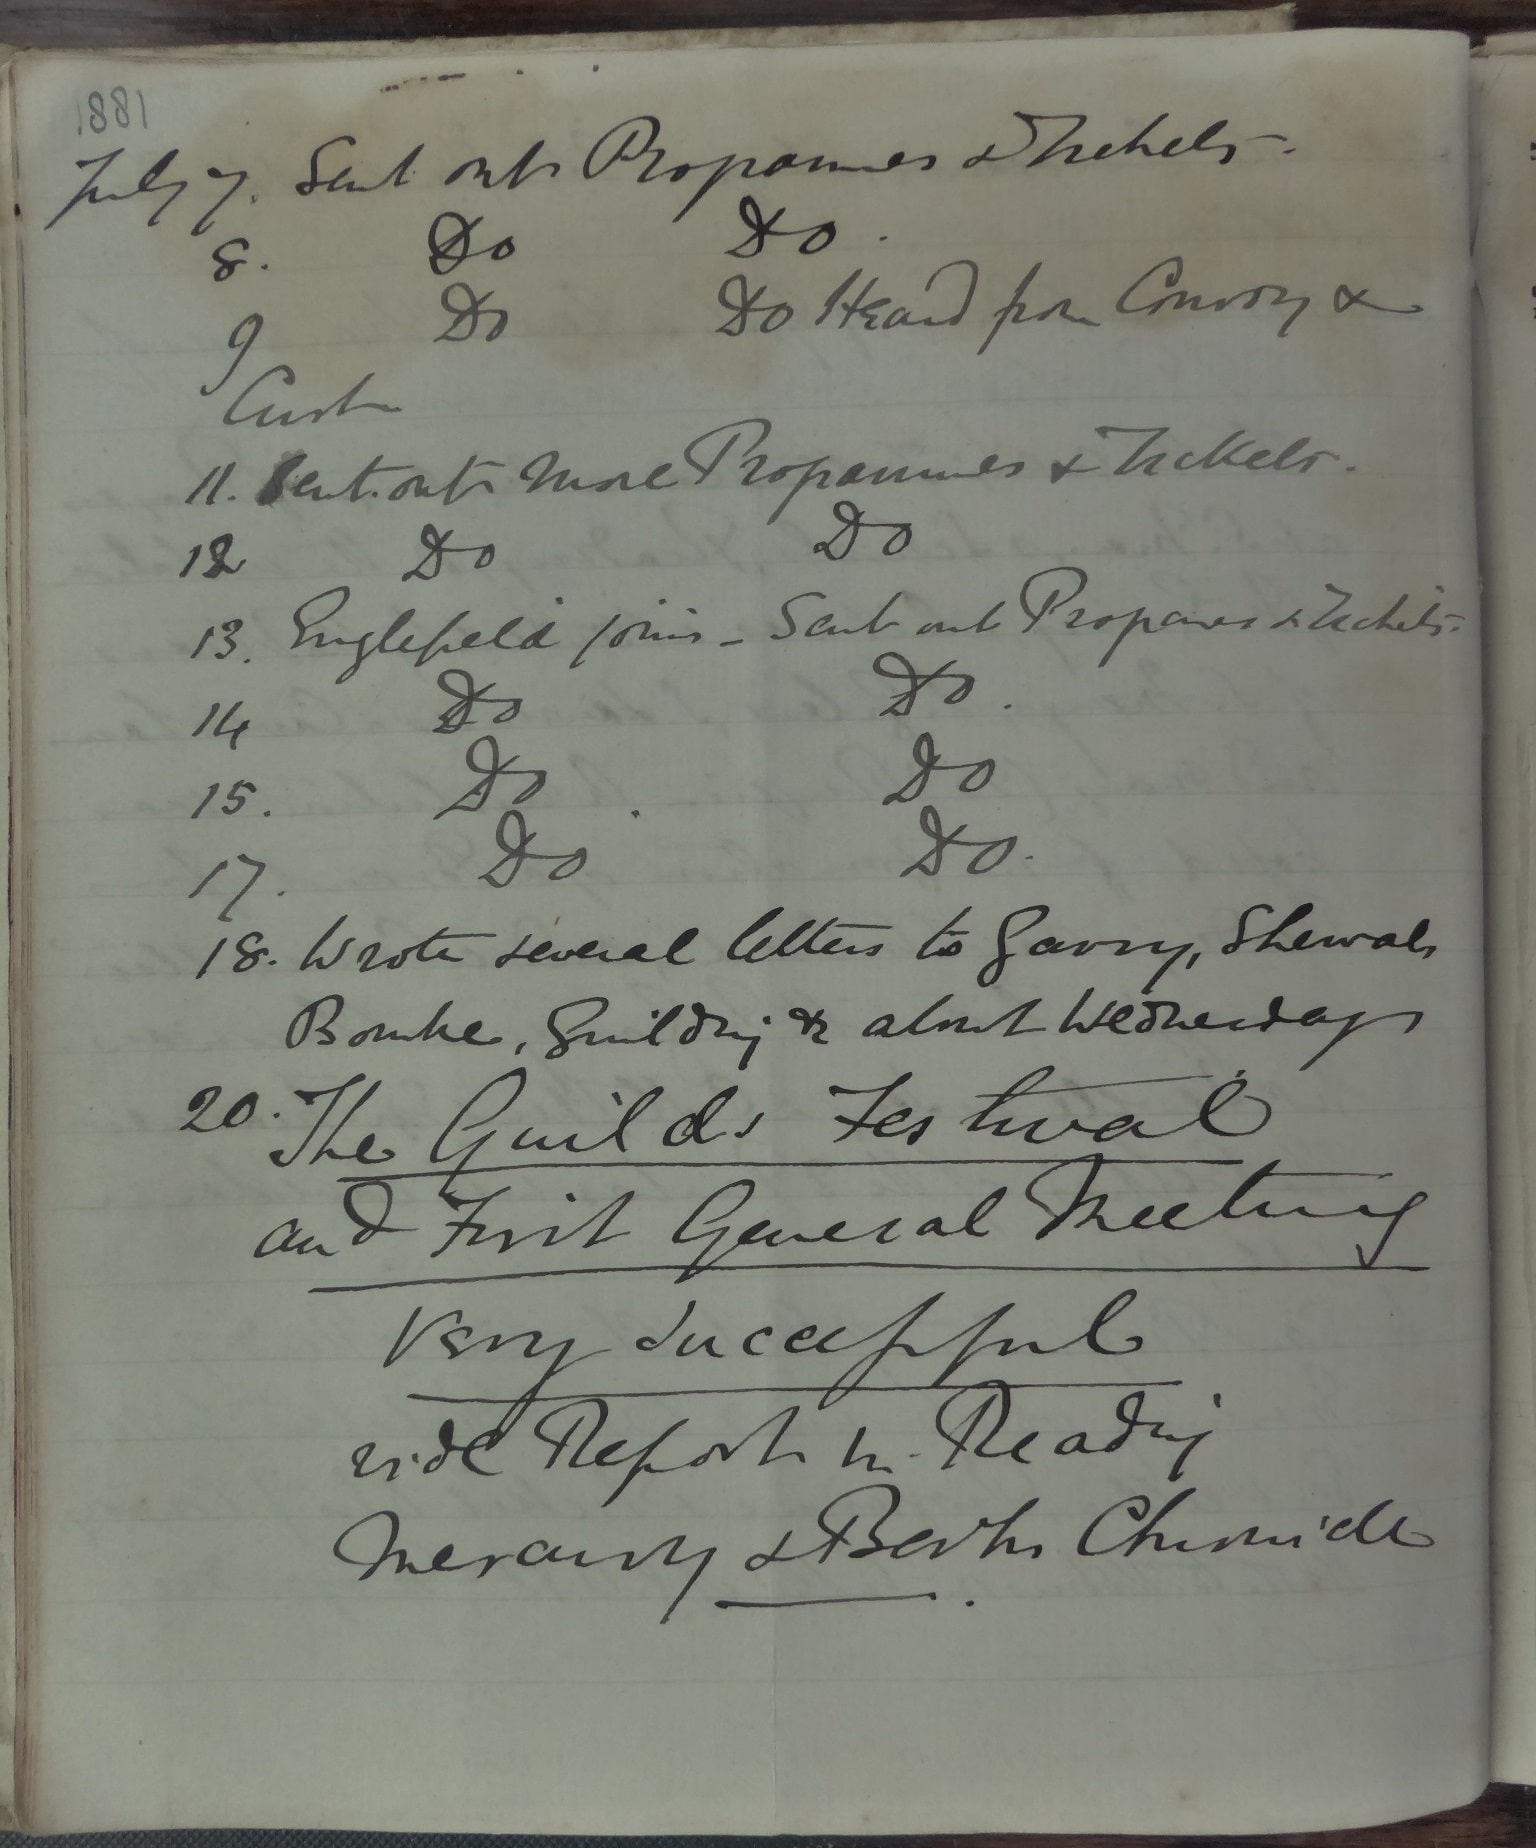 1881
July 7. Sent out Programmes & Tickets.
8. Do Do.
9 Do Do Heard from Convoy &
11. Sent out more Programmes & Tickets.
12 Do Do
13. Englefield joins - Sent out Programes & Tickets.
14 Do Do.
15. Do Do
17. Do Do.
18. Wrote several letters to Garry,
Bourke, Guilding & about Wednesdays
20. The Guilds Festival
and First General Meeting
Very Successful
vide Report in Reading
Mercury & Berks Chronicle